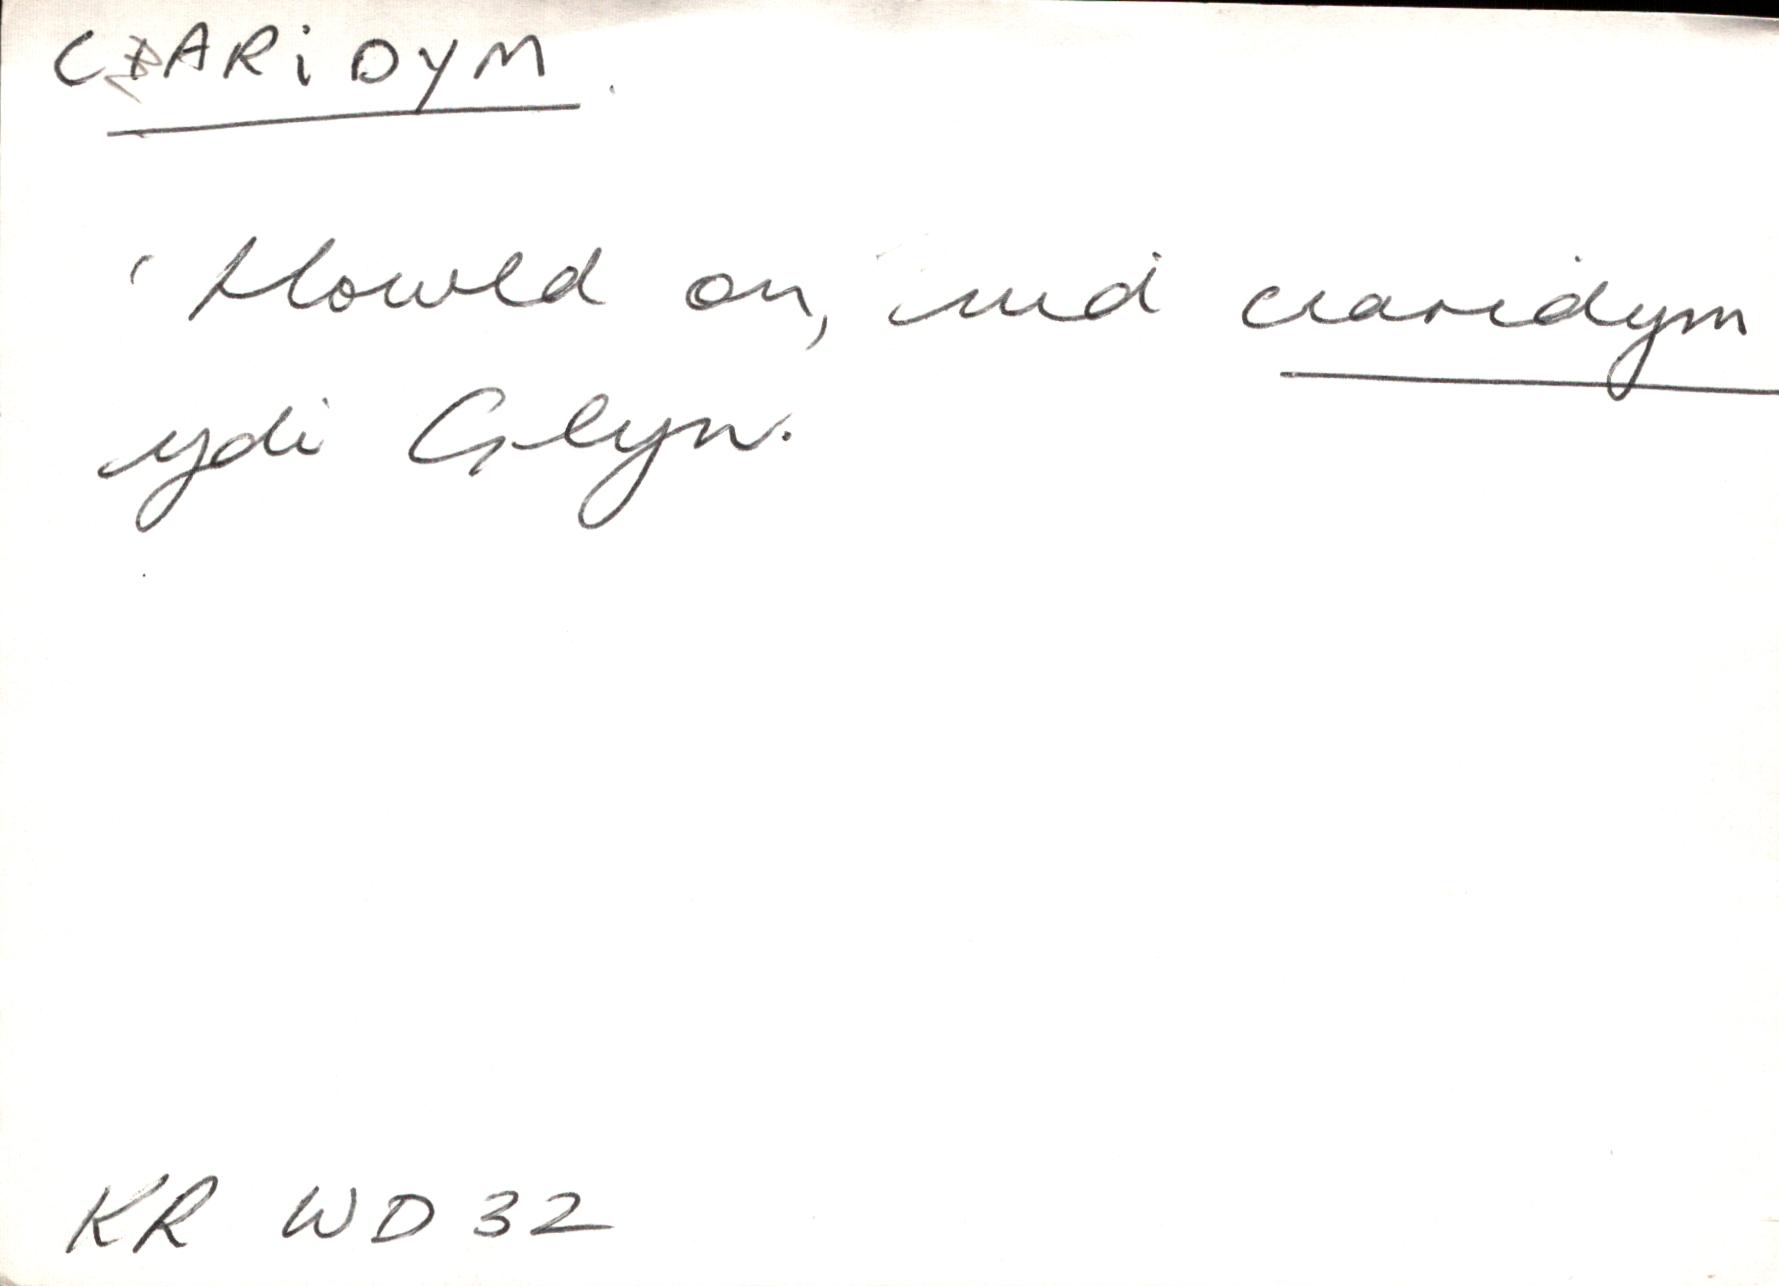 CIARIDYM
' Howld on, nid ciaridym
ydi Glyn.
KR WD 32